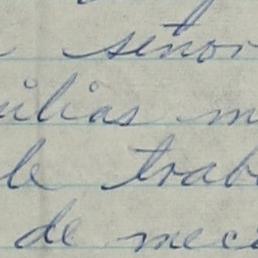 señor
ilias m
le trab
de mec